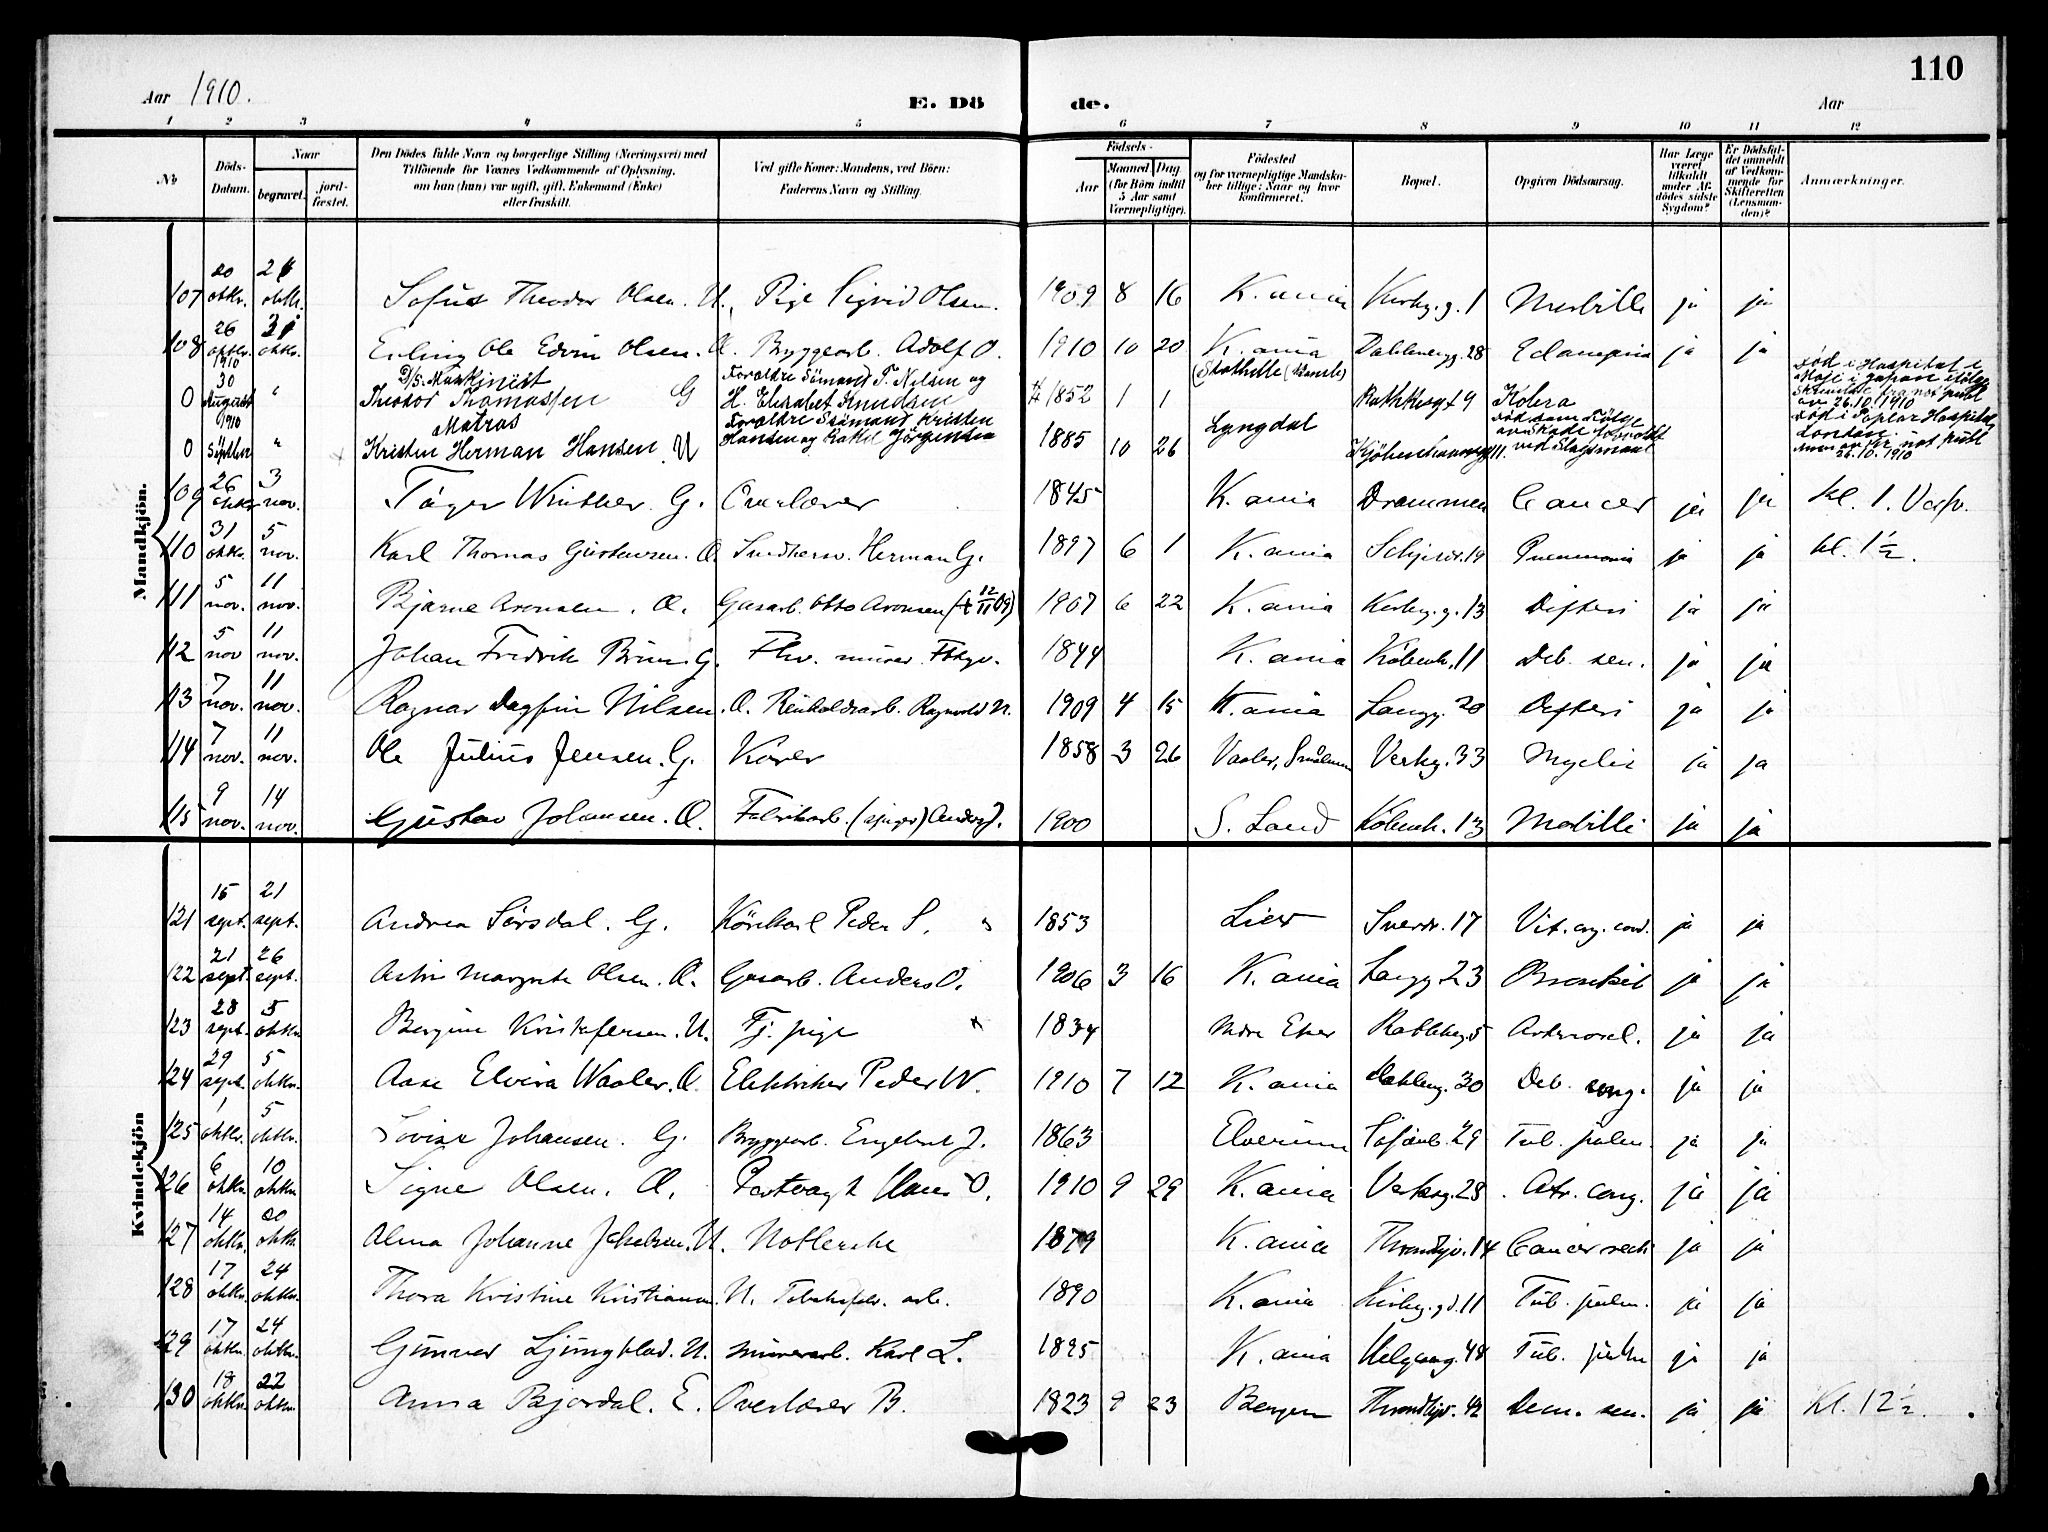 110
Aar 1910.
E. Dö
de.
Aar
1 2 3 4 5 6 7 8 9 10 11 12
No
Döds-Datum.
Naar
begravet.
jord-fæstet.
Den Dödes fulde Navn og borgerlige Stilling (Næringsvei) med
Tilföiende for Voxnes Vedkommende af Oplysning,
om han (hun) var ugift, gift, Enkemand (Enke)
eller fraskilt.
Ved gifte Koner: Mandens, ved Börn:
Faderens Navn og Stilling.
Födsels-
Aar
Maaned Dag
(for Börn indtil
5 Aar samt
Værnepligtige).
Födested
og for værnepligtige Mandska-
ber tillige: Naar og hvor
konfirmeret.
Bopæl.
Opgiven Dödsaarsag.
Har Læge
været
tilkaldt
under Af-
dödes sidste
Sygdom?
Er Dödsfal-
det anmeldt
af Vedkom-
mende for
Skifteretten
(Lensman-
den)?
Anmærkninger.
Mandkjön.
107 20 oktr. Sofus Theodor Olsen. U. Pige Sigrid Olsen. 1909 8 16 K.ania Kirkg.g. 1 Morbilli ja ja
108 26 oktr. 1910 31 oktr. Erling Ole Edvin Olsen. Æ. Bryggearb. Adolf O. 1910 10 20 K.ania Dahlbergg. 28 Eclampsia ja ja
0 30 August 1910 " D/S. Maskinist Theodor Thomassen G Forældre Sömand T. Nilsen og H. Elisabet Knudsen 1852 1 1 Rathkesgt 9 Kolera Död i Hospital i Moji i Japan 26.10.1910
0 Septbr " Matros Kristen Herman Hansen U Forældre Sjömand Kristen Hansen og Rakel Jörgensen 1885 10 26 Lyngdal Kjöbenhavnsg 11. Död i Poplar Hospital London 26.10.1910
109 26 oktr. 3 nov. Winther. G. Overlærer 1845 K.ania Drammen Cancer ja ja kl. 1.
110 31 oktr. 5 nov. Karl Thomas Gustavsen. Æ. Herman G. 1897 6 1 K.ania 19 Pneumonia ja ja kl. 1½.
111 5 nov. 11 nov. Bjarne Aronsen. Æ. Gasarb. Otto Aronsen († 12/11 09) 1907 6 22 K.ania Kirkg.g. 13 Difteri ja ja
112 5 nov 11 nov. Johan Fredrik Bruun. G. Fhv. murer 1844 K.ania Köbenh. 11 Deb. sen. ja ja
113 7 nov. 11 nov. Ragnar Dagfin Nilsen. Æ. Renholdsarb. Ragnvald N. 1909 4 15 K.ania Langg. 20 Difteri ja ja
114 7 nov. 11 nov. Ole Julius Jensen. G. Kører 1858 3 26 Vaaler, Smålenene Verksg. 33 Myelit ja ja
115 9 nov. 14 nov. Gustav Johansen. Æ. Fabrikarb. Anders J. 1900 S. Land Köbenh. 13 Morbilli ja ja
Kvindekjön
121 15 sept. 21 sept. Andrea Sörsdal. G. Körekarl Peder S. 1853 Lier Sverdr. 17 Vit. org. cord. ja ja
122 21 sept. 26 sept. Astri Margrete Olsen. Æ. Gasarb. Anders O. 1906 3 16 K.ania Langg 23 Bronkit ja ja
123 28 sept. 5 oktr. Bergine Kristofersen. U. Tj. pige 1834 Nedre Eker Rathkeg 5 Arteroscl. ja ja
124 29 sept. 5 oktr. Aase Elvira Waaler. Æ. Elektriker Peder W. 1910 7 12 K.ania Dahlbg. 30 Deb. cong. ja ja
125 1 oktr. 5 oktr. Lovise Johansen. G. Bryggearb. Engebret J. 1863 Elverum Sofienb. 29 Tub. pulm. ja ja
126 6 oktr. 10 oktr. Signe Olsen. Æ. Portvagt Hans O. 1910 9 29 K.ania Verksg. 28 Atr. cong. ja ja
127 14 oktr. 20 oktr. Alma Johanne Jakobsen. U. 1879 K.ania Throndhjv. 14 Cancer recti ja ja
128 17 oktr. 24 oktr. Thora Kristine Kristiansen. U. Tobaksfabr. arb. 1890 K.ania Kirkg.gd. 11 Tub. pulm. ja ja
129 17 oktr. 24 oktr. Gunvor Ljungblad. U. Murerarb. Karl L. 1895 K.ania Helgesg. 48 Tub. pulm ja ja
130 18 oktr. 22 oktr. Anna Bjordal. E. Overlærer B. 1823 9 23 Bergen Throndhjv. 42 Dem. sen. ja ja Kl. 12½.